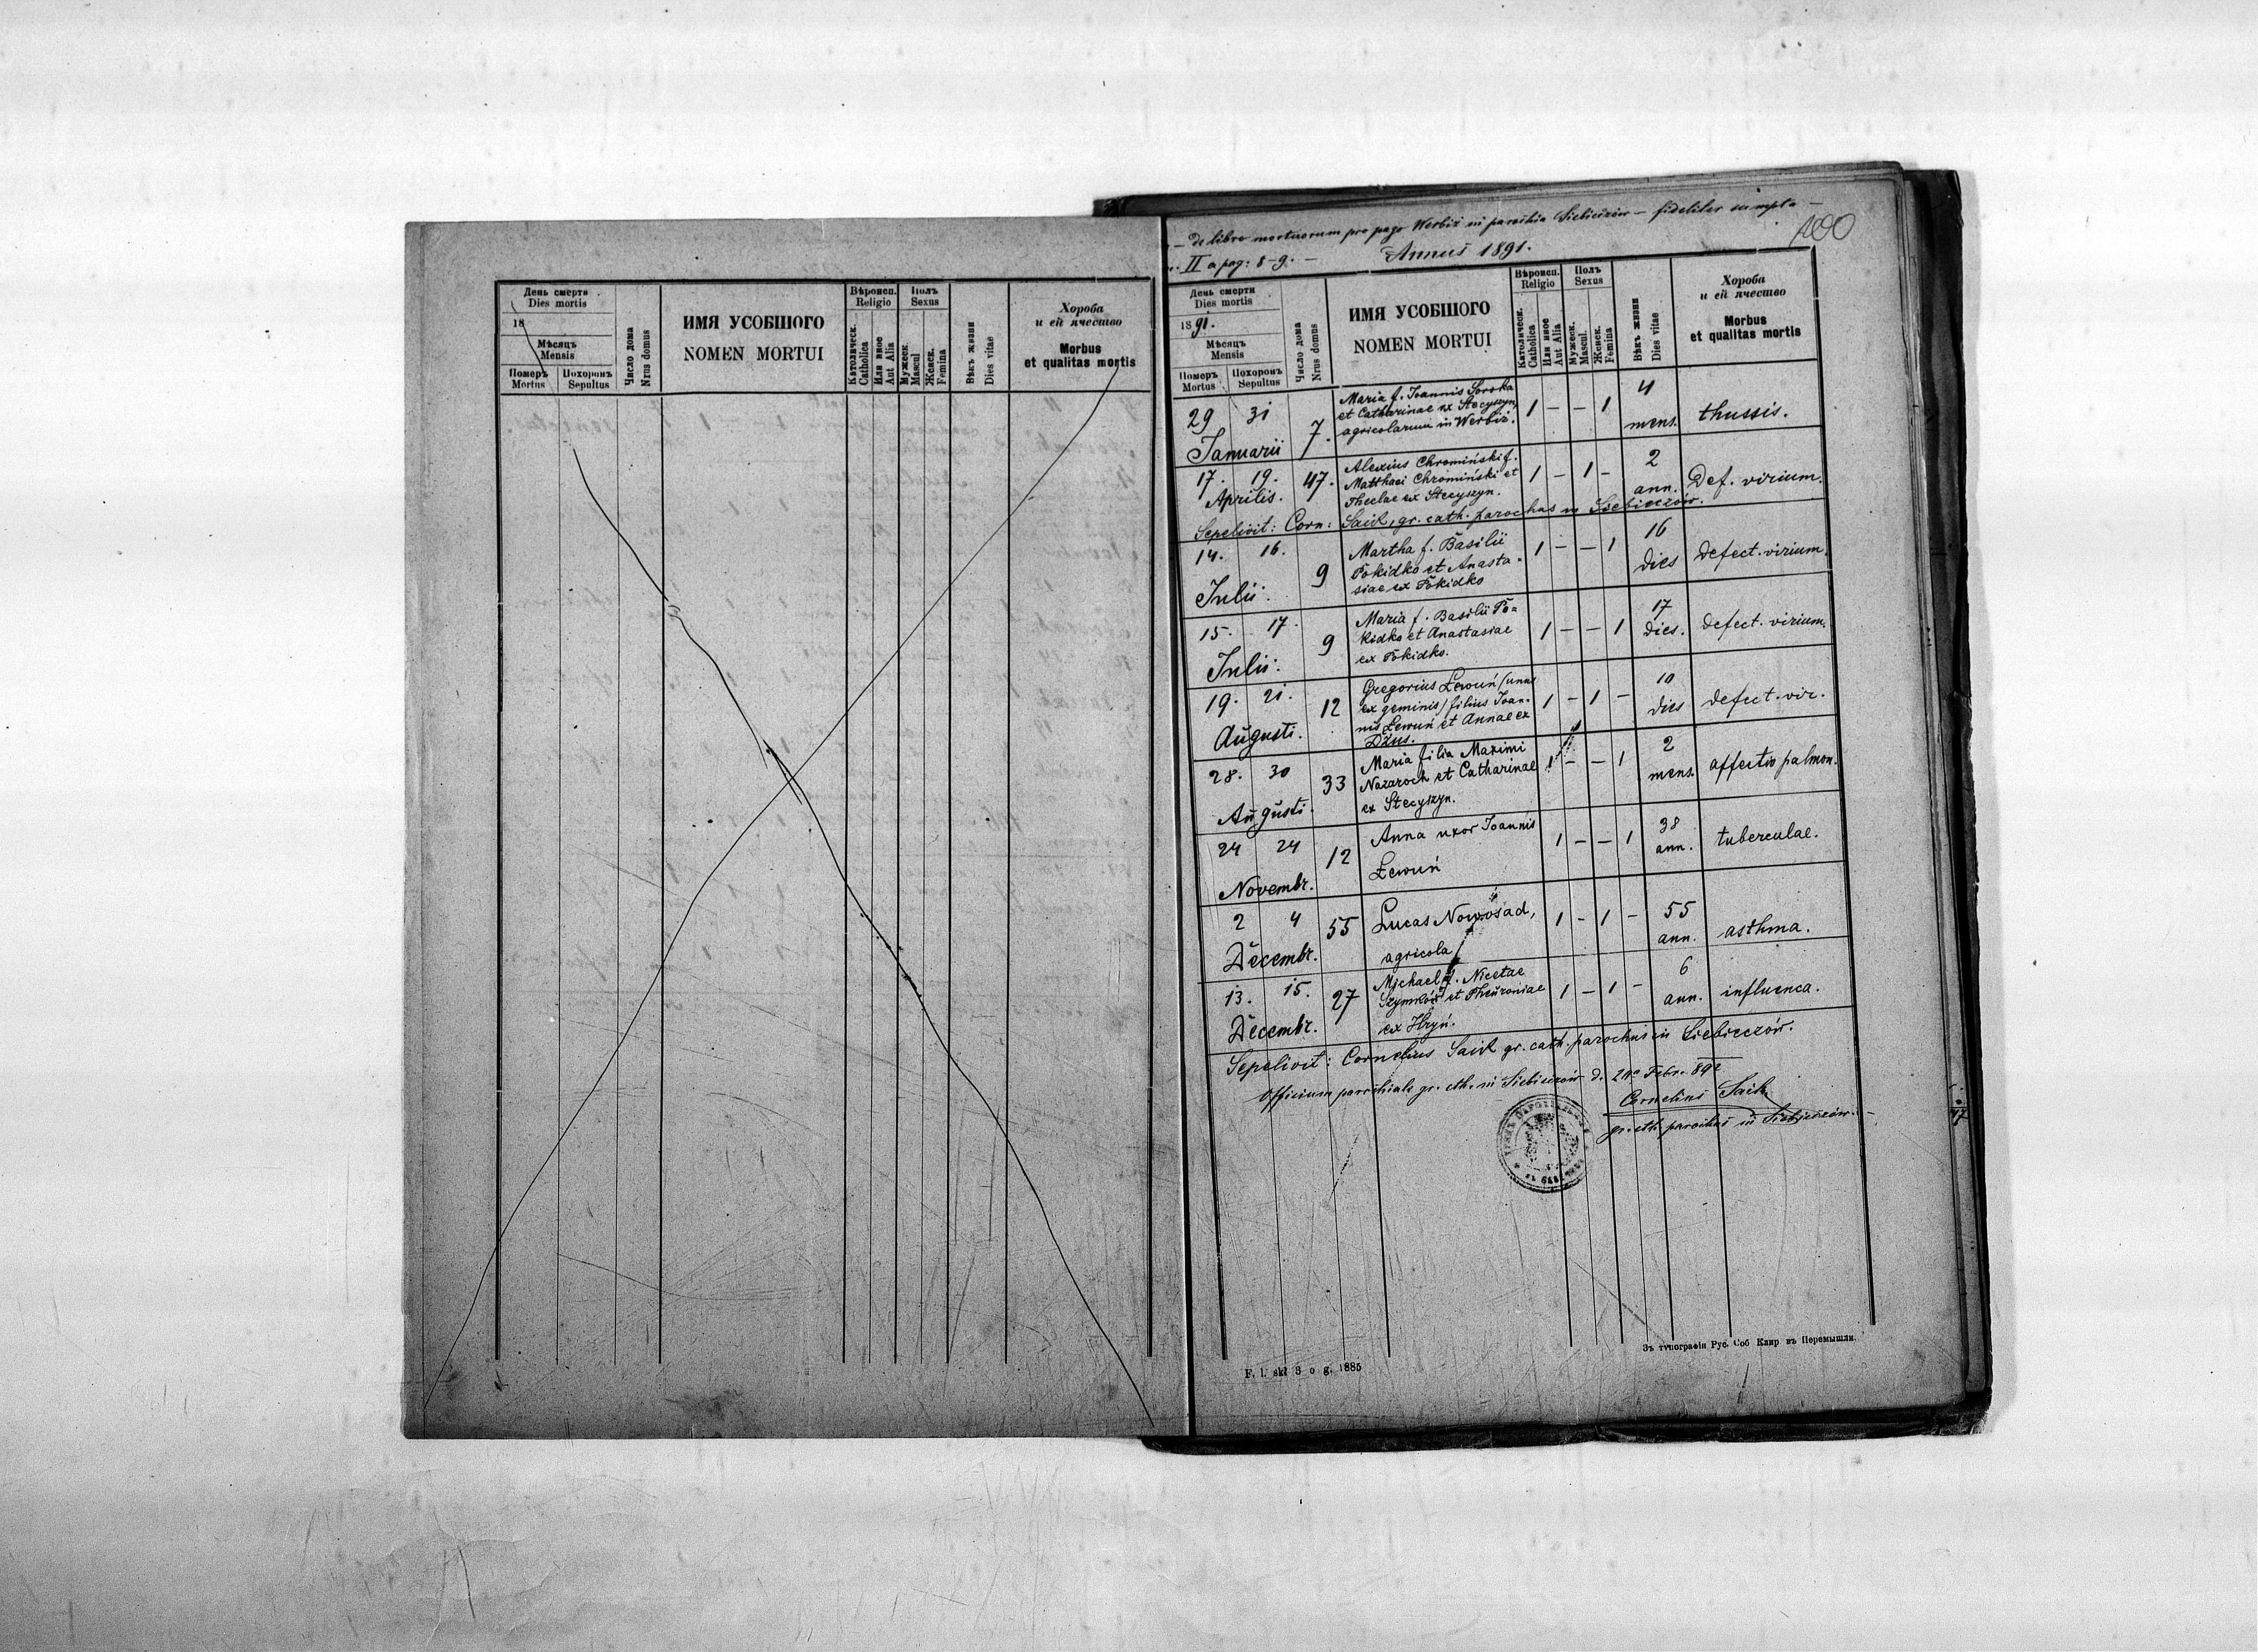 День смерти
Dies mortis
18
Мѣсяцъ
Mensis
Померъ
Mortus
Похоронъ
Sepultus
Число дома
Nrus domus
ИМЯ УСОБШОГО
NOMEN MORTUI
Вѣроисп.
Religio
Католическ.
Catholica
Или иное
Aut Alia
Полъ
Sexus
Мужеск.
Mascul
Женск.
Femina
Вѣкъ жизни
Dies vitae
Хороба
и ей ячество
Morbus
et qualitas mortis
— de libro mortuorum pro pago Werbiż in parochia Siebieczów — fideliter sumpta —
II a pag: 8-9. — Annus 1891.
100
День смерти
Dies mortis
1891.
Мѣсяцъ
Mensis
Померъ
Mortus
Похоронъ
Sepultus
Число дома
Nrus domus
ИМЯ УСОБШОГО
NOMEN MORTUI
Вѣроисп.
Religio
Католическ.
Catholica
Или иное
Aut Alia
Полъ
Sexus
Мужеск.
Mascul.
Женск.
Femina
Вѣкъ жизни
Dies vitae
Хороба
и ей ячество
Morbus
et qualitas mortis
29 31 Januarii 7. Maria f. Joannis Soroka
et Catharinae ex Stecyszyn,
agricolarum in Werbiż. 1 — — 1 4 mens. thussis.
17. 19. Aprilis. 47. Alexius Chromiński f.
Matthaei Chromiński et
Theclae ex Stecyszyn. 1 — 1 — 2 ann. Def. virium.
Sepelivit: Corn: Saik, gr. cath. parochus in Siebieczów.
14. 16. Julii. 9 Martha f. Basilii
Pokidko et Anasta-
siae ex Pokidko 1 — — 1 16 dies defect. virium.
15. 17. Julii. 9 Maria f. Basilii Po=
kidko et Anastasiae
ex Pokidko. 1 — — 1 17 dies. defect. virium.
19. 21. Augusti. 12 Gregorius Lewuń (unus
ex geminis) filius Joan-
nis Lewuń et Annae ex
Dżus. 1 — 1 — 10 dies defect. vir.
28. 30 Augusti. 33 Maria filia Maximi
Nazaroch et Catharinae
ex Stecyszyn. 1 — — 1 2 mens. affectio palmon.
24 24 Novembr. 12 Anna uxor Joannis
Lewuń 1 — — 1 38 ann. tuberculae.
2 4 Decembr. 55 Lucas Nowosad,
agricola 1 — 1 — 55 ann. asthma.
13. 15. Decembr. 27 Michael f. Nicetae
Szymków et Pheuroniae
ex Hryń. 1 — 1 — 6 ann. influenca.
Sepelivit: Cornelius Saik gr. cath. parochus in Siebieczów.
Officium parochiale gr. cth. in Siebieczów d. Febr. 892
Cornelius Saik
gr. cth. parochus in Siebieczów.
F. l. skł 3 o g. 1885
Зъ типографіи Рус. Соб Клир въ Перемышли.